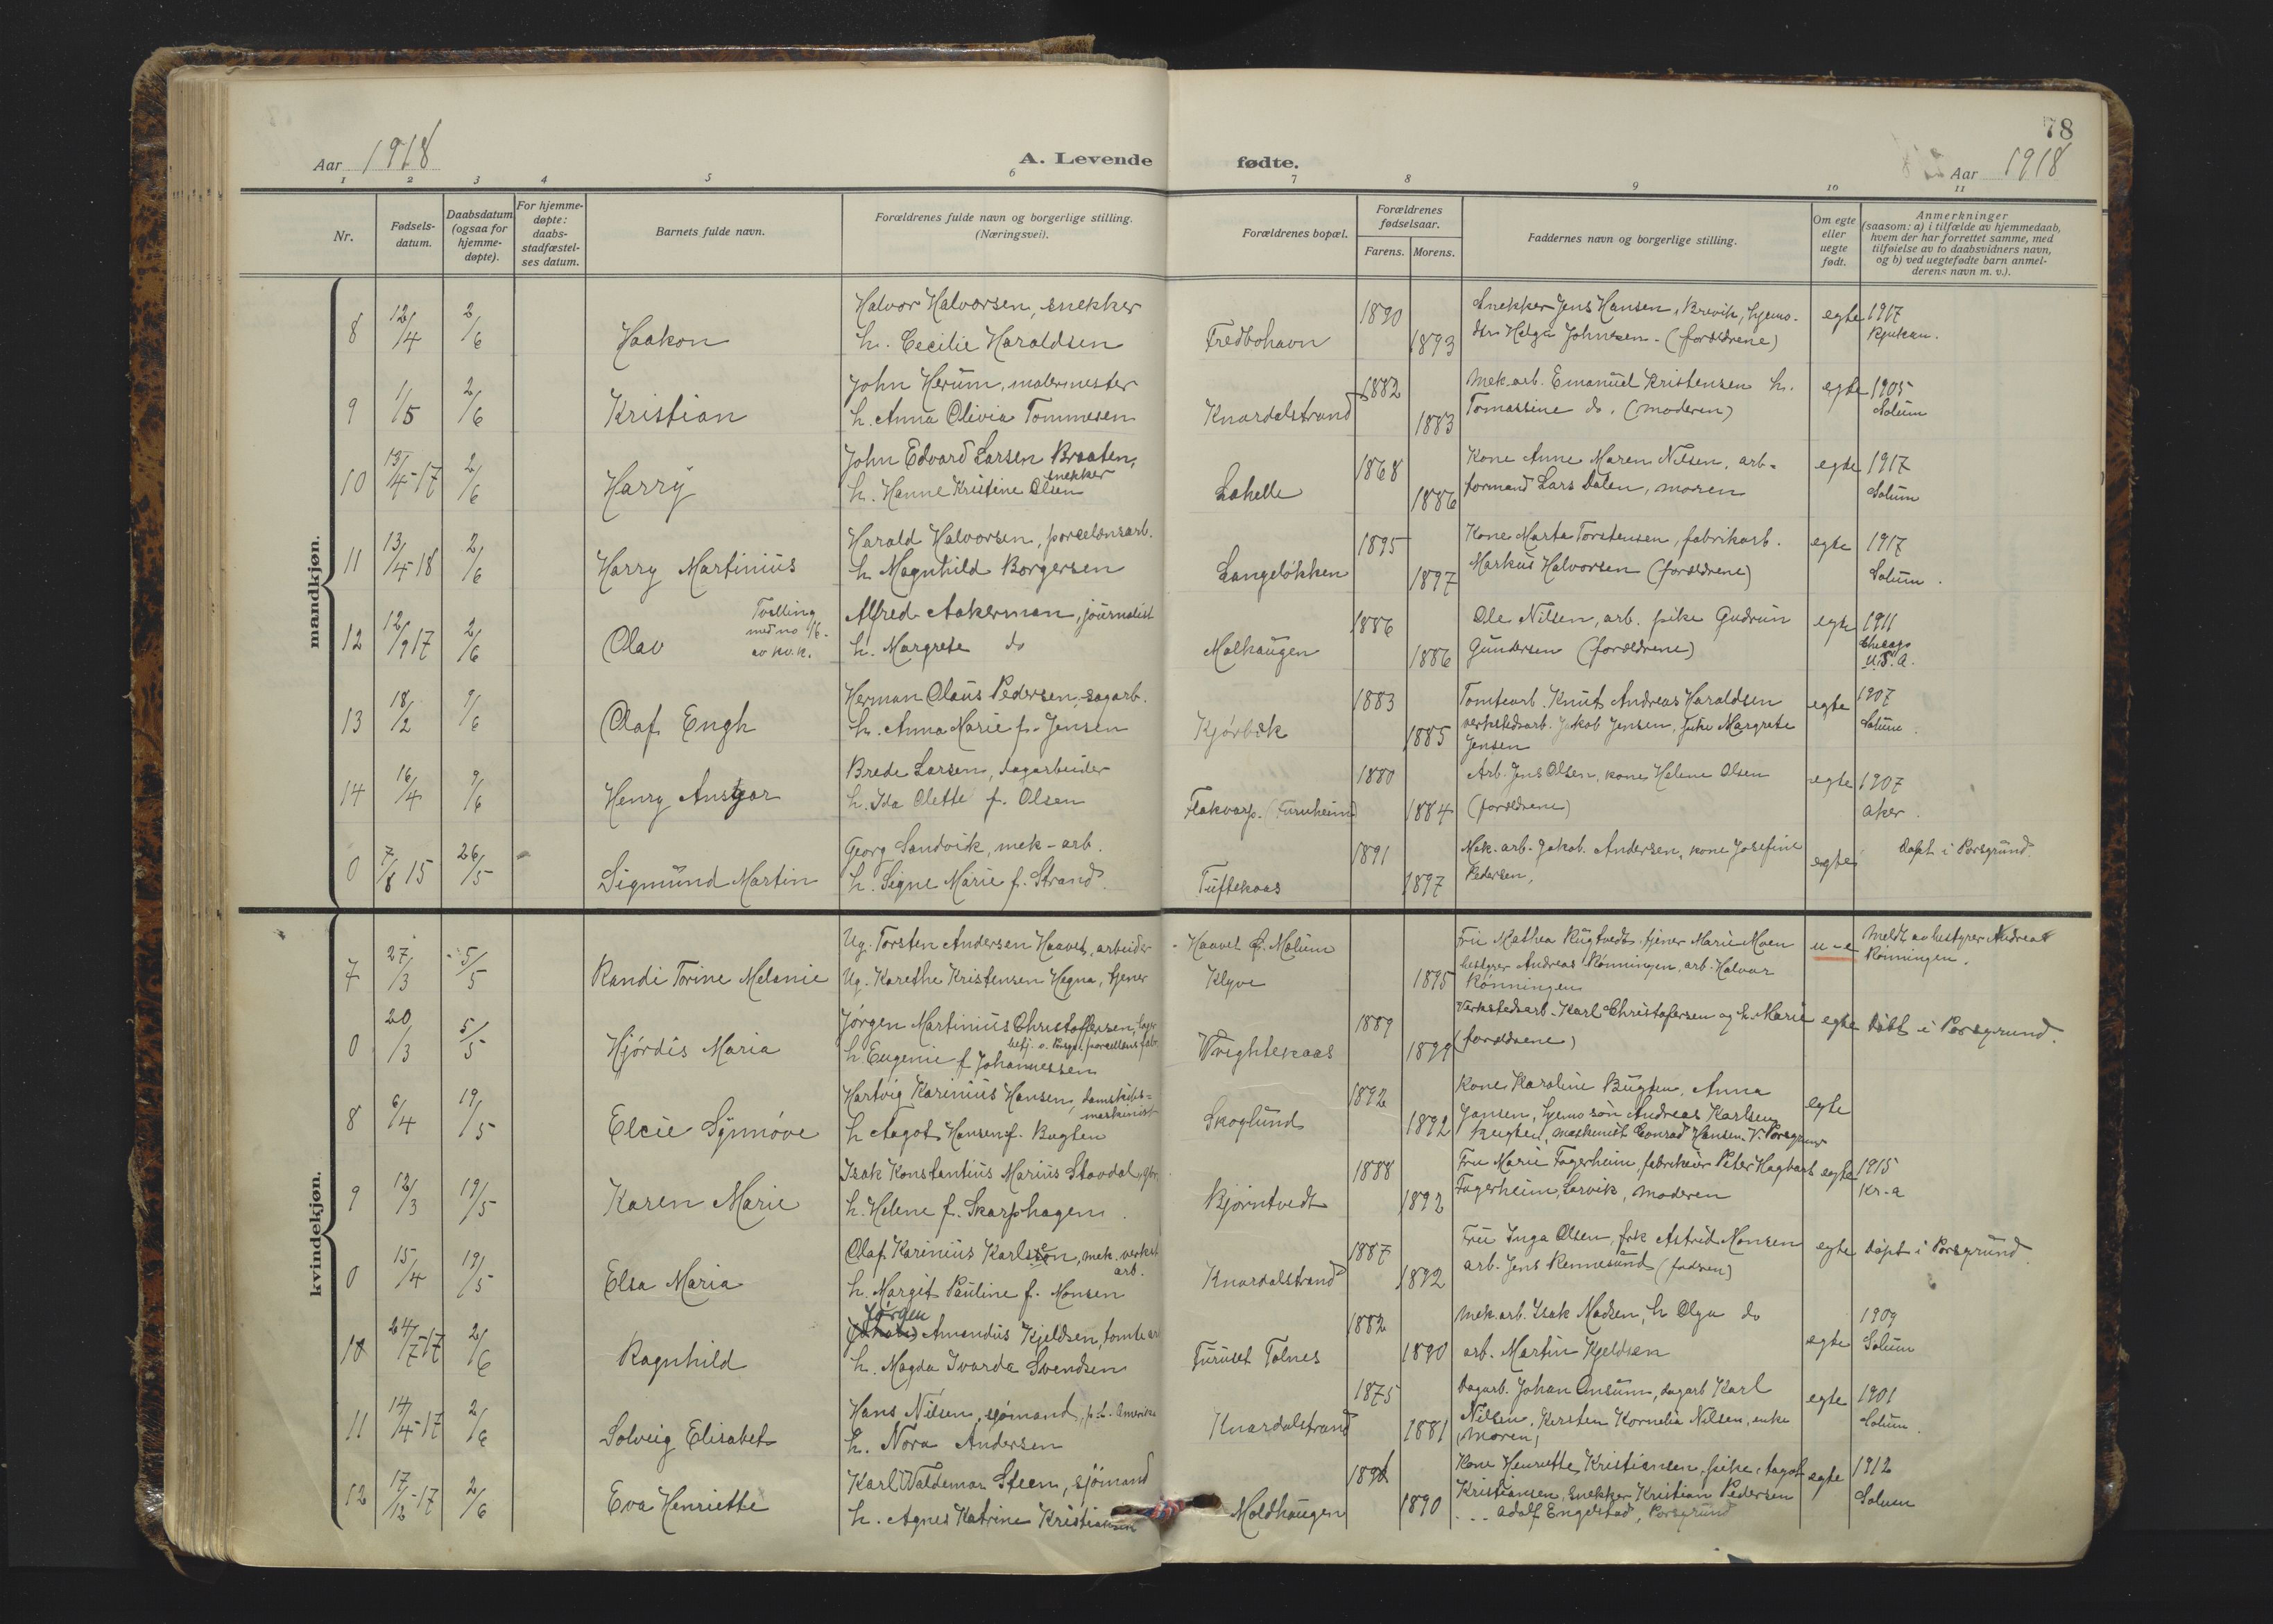 78
Aar 1918
A. Levende fødte.
Aar 1918
1 2 3 4 5 6 7 8 9 10 11
Nr.
Fødsels-
datum.
Daabsdatum
(ogsaa for
hjemme-
døpte).
For hjemme-
døpte:
daabs-
stadfæstel-
ses datum.
Barnets fulde navn.
Forældrenes fulde navn og borgerlige stilling.
(Næringsvei).
Forældrenes bopæl.
Forældrenes
fødselsaar.
Farens. Morens.
Faddernes navn og borgerlige stilling.
Om egte
eller
uegte
født.
Anmerkninger
(saasom: a) i tilfælde av hjemmedaab,
hvem der har forrettet samme, med
tilføielse av to daabsvidners navn,
og b) ved uegtefødte barn anmel-
derens navn m. v.).
mandkjøn.
8 12/4 2/6 Haakon
Halvor Halvorsen, snekker
h. Cecilie Haraldsen
Fredbohavn 1890 1893
Snekker Jens Hansen, Brevik, hjemo-
dtr Helga Johnsen - (forældrene)
egte 1917
Rjukan.
9 1/5 2/6 Kristian
John Herum, malermester
h. Anna Olivia Tommesen
Knardalstrand 1882 1883
Mek. arb. Emanuel Kristensen h.
Tomassine do. (moderen)
egte 1905
Solum
10 13/4-17 2/6 Harry
John Edvard Larsen Braaten,
snekker
h. Hanne Kristine Olsen
Lahelle 1868 1886
Kone Anne Maren Nilsen, arb-
formand Lars Dalen, moren
egte 1917
Solum
11 13/4-18 2/6 Harry Martinius
Harald Halvorsen, porcelænsarb.
h. Magnhild Borgersen
Langeløkken 1895 1897
Kone Marta Torstensen, fabrikarb.
Markus Halvorsen (forældrene)
egte 1917
Solum.
12 12/9 17 2/6 Olav
Tvilling
med no 16.
av kv.k.
Alfred Aakerman, journalist
h. Margrete do
Malhaugen 1886 1886
Ole Nilsen, arb. pike Gudrun
Gundersen (forældrene)
egte 1911
Chicago
U.S.A.
13 18/2 9/6 Olaf Engh
Herman Claus Pedersen, sagarb.
h. Anna Marie f. Jensen
Kjørbæk 1883 1885
Tomtearb. Knut Andreas Haraldsen
verkstedsarb. Jakob Jensen, frk Margrete
Jensen
egte 1907
Solum.
14 16/4 9/6 Henry Ansgar
Brede Larsen, dagarbeider
h. Ida Olette f. Olsen
Flakvarp. (Furuheim) 1880 1884
Arb. Jens Olsen, kone Helene Olsen
(forældrene)
egte 1907
Aker.
0 7/8 15 26/5 Sigmund Martin
Georg Sandvik, mek-arb.
h. Signe Marie f. Strand.
Tuftekaas 1891 1897
Mek. arb. Jakob Andersen, kone Josefine
Pedersen,
egte døpt i Porsgrund.
kvindekjøn.
7 27/3 5/5 Randi Torine Melanie
Ug. Torsten Andersen Haavet, arbeider
Ug. Karethe Kristensen Hagna, tjener
Haavet f. Melum
Klyve 1895
Fru Mathea Rugtvedt, tjener Marie Moen
bestyrer Andreas Rønningen, arb. Halvor
Rønningen
u-e Meldt av bestyrer Andreas
Rønningen.
0 20/3 5/5 Hjørdis Maria
Jørgen Martinius Christoffersen, lager
betj. v. Porsgr. porcellensfabr.
h. Eugenie f. Johannessen
Wrightekaas 1889 1899
Verkstedsarb. Karl Christofersen og h. Marie
(forældrene)
egte døbt i Porsgrund.
8 6/4 19/5 Elcie Synnøve
Hartvig Karinius Hansen, damskibs-
maskinist
h Aagot Hansen f. Bugten
Skoglund 1892 1892
Kone Karoline Bugten, Anna
Jansen, hjemo søn Andreas Karlsen
Bugten, maskinist Conrad Hansen V. Porsgrund
egte
9 12/3 19/5 Karen Marie
Isak Konstantius Marius Stavdal, gbr.
h. Helene f. Skarphagen.
Bjørntvedt 1888 1892
Fru Marie Fagerheim, fabrikeier Peter Hagbart
Fagerheim, Larvik, moderen
egte 1915
Kr-a
0 15/4 19/5 Elsa Maria
Olaf Karinius Karlsen, mek. verkst
arb.
h. Margit Pauline f. Monsen
Knardalstrand 1887 1892
Fru Inga Olsen, frk Astrid Monsen
arb. Jens Rennesund (fadren)
egte døpt i Porsgrund
10 24/7-17 2/6 Ragnhild
Jørgen
Amandus Kjeldsen, tomtear
h. Magda Ivarda Svendsen
Furuset Tolnes 1882 1890
Mek. arb. Isak Madsen, h Olga do
arb. Martin Kjeldsen
egte 1909
Solum
11 14/4-17 2/6 Solveig Elisabet
Hans Nilsen, sjømand, p.t. Amerika
h. Nora Andersen
Knardalstrand 1875 1881
Dagarb. Johan Ansum, dagarb Karl
Nilsen, Kirsten Kornelia Nilsen, enke
(moren)
egte 1901
Solum.
12 17/12-17 2/6 Eva Henriette
Karl Waldemar Steen, sjømand
h. Agnes Katrine Kristiansen
Moldhaugen 1891 1890
Kone Henriette Kristiansen, pike Aagot
Kristiansen, snekker Kristian Pedersen
... Adolf Engelstad, Porsgrund
egte 1912
Solum